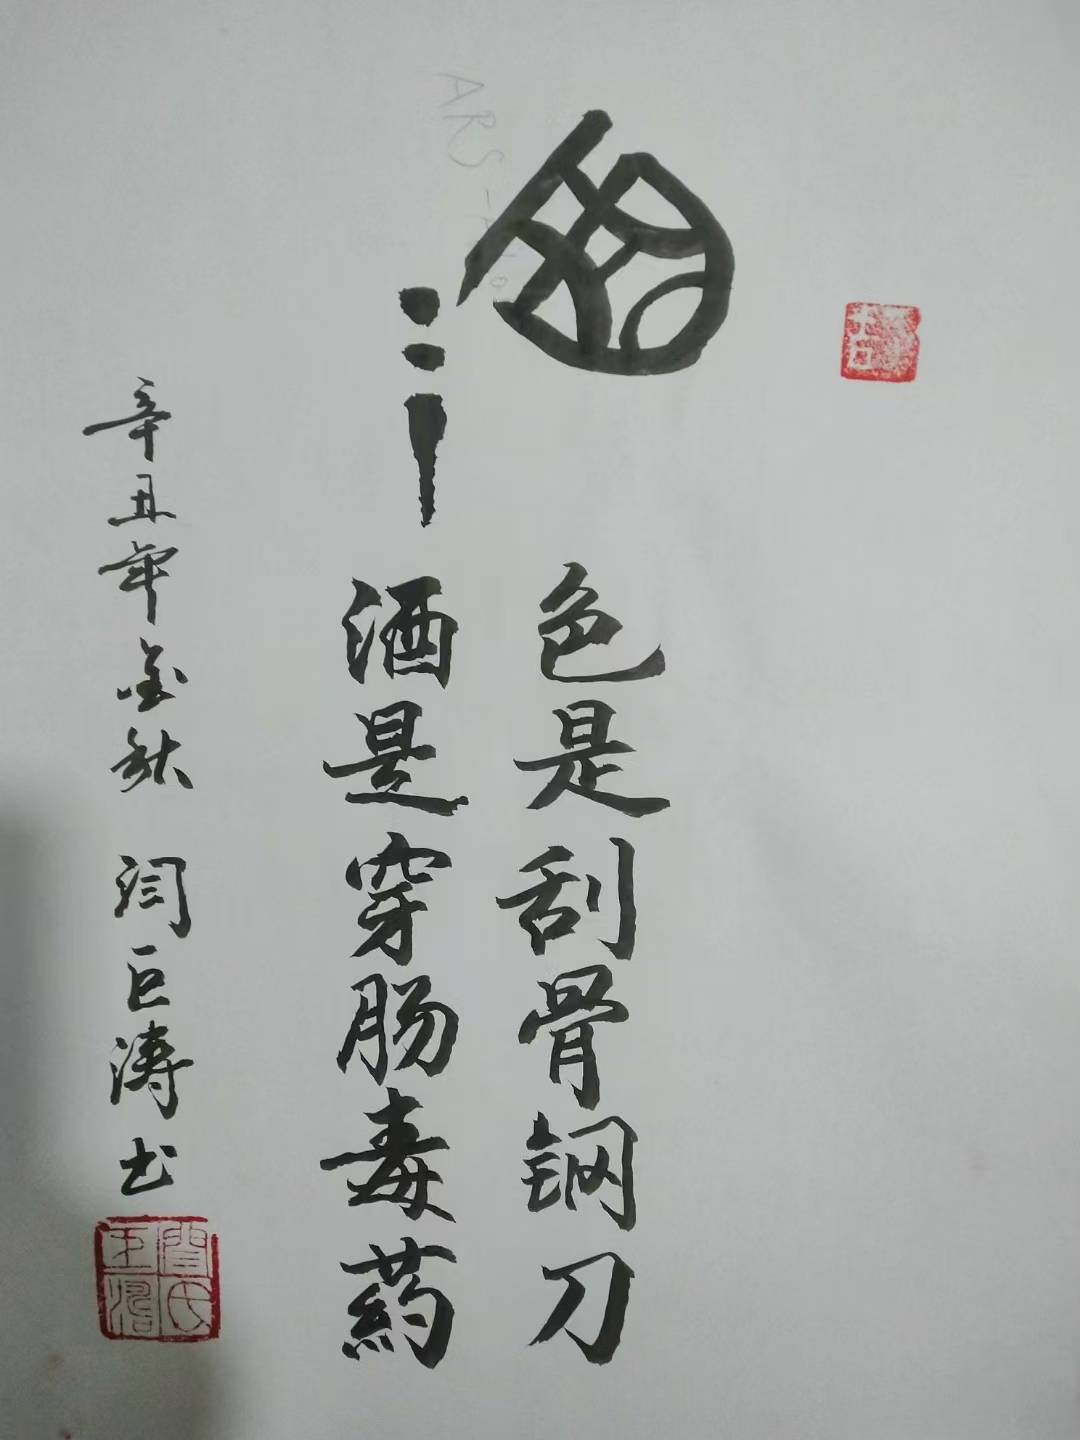 色是刮骨钢刀
酒是穿肠毒药
辛丑年金秋 闫巨涛书
ARS